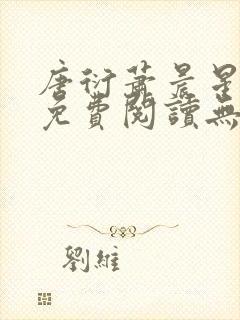 唐衍蕭晨星
免費閱讀無
劉維